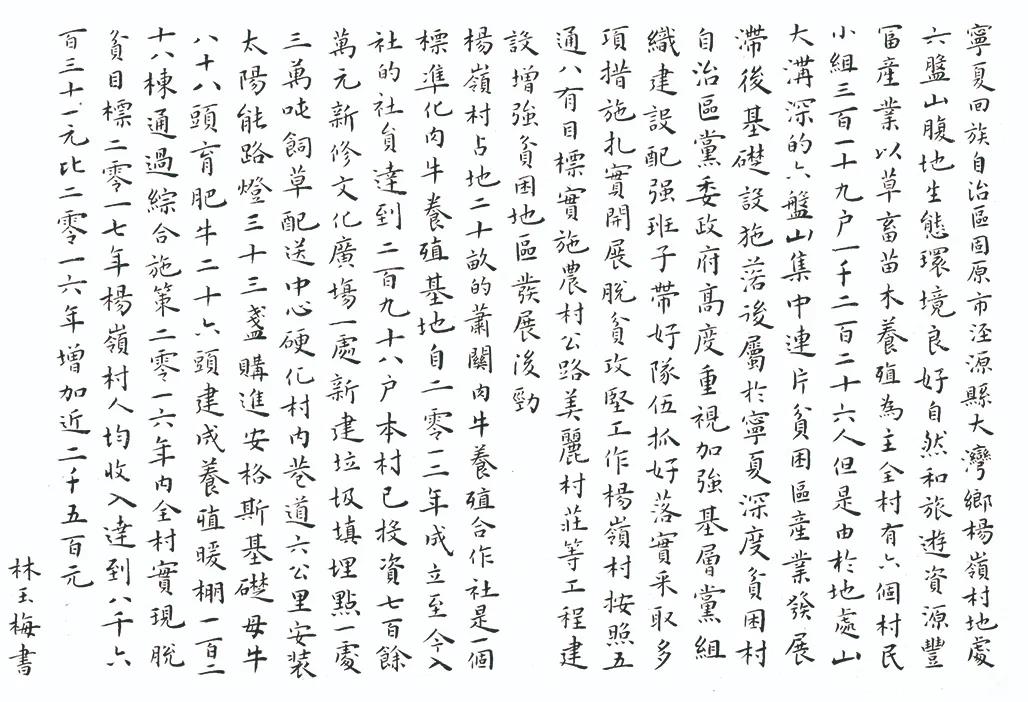 寧夏回族自治區固原市涇源縣大灣鄉楊嶺村地處
六盤山腹地生態環境良好自然和旅遊資源豐
富產業以草畜苗木養殖為主全村有六個村民
小組三百一十九户一千二百二十六人但是由於地處山
大溝深的六盤山集中連片貧困區產業發展
滯後基礎設施落後屬於寧夏深度貧困村
自治區黨委政府高度重視加強基層黨組
織建設配强班子帶好隊伍抓好落實采取多
項措施扎實開展脫貧攻堅工作楊嶺村按照五
通八有目標實施農村公路美麗村莊等工程建
設增強貧困地區發展後勁
楊嶺村占地二十畝的蕭關肉牛養殖合作社是一個
標準化肉牛養殖基地自二零一三年成立至今入
社的社員達到二百九十八户本村已投資七百餘
萬元新修文化廣場一處新建垃圾填埋點一處
三萬吨飼草配送中心硬化村内巷道六公里安装
太陽能路燈三十三盞購進安格斯基礎母牛
八十八頭育肥牛二十六頭建成養殖暖棚一百二
十八棟通過綜合施策二零一六年内全村實現脫
貧目標二零一七年楊嶺村人均收入達到八千六
百三十一元比二零一六年增加近二千五百元
林玉梅書